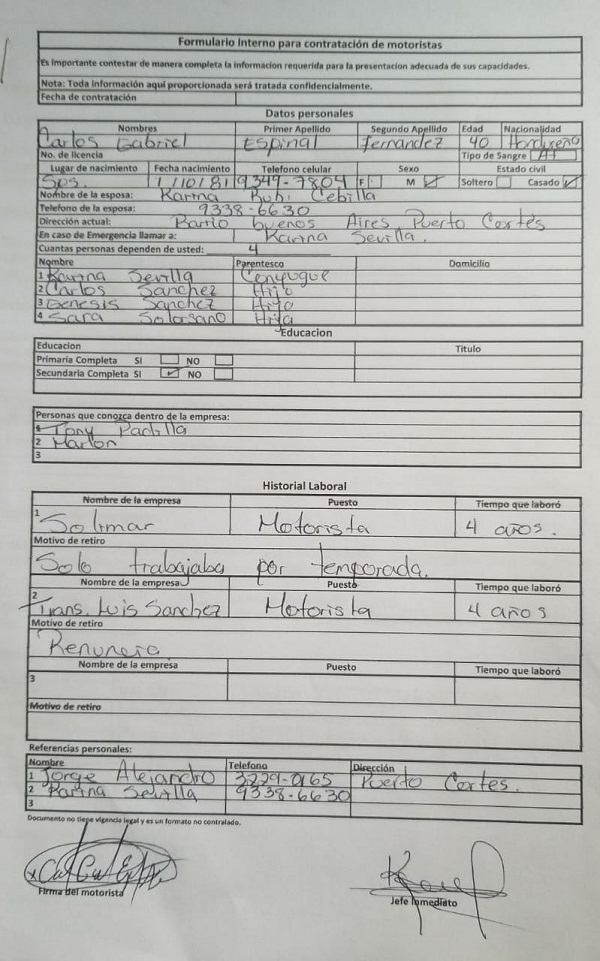 Formulario Interno para contratación de motoristas
Es importante contestar de manera completa la informacion requerida para la presentacion adecuada de sus capacidades.
Nota: Toda información aqui proporcionada será tratada confidencialmente.
Fecha de contratación
Datos personales
Nombres Primer Apellido Segundo Apellido Edad Nacionalidad
Carlos Gabriel Espinal Fernandez 40 Hondureño
No. de licencia Tipo de Sangre A+
Lugar de nacimiento Fecha nacimiento Telefono celular Sexo Estado civil
Sps. 1/10/81 9349-7804 F M Soltero Casado
Nombre de la esposa: Karina Rubi Cebilla
Telefono de la esposa: 9338-6630
Dirección actual: Barrio buenos Aires, Puerto Cortés
En caso de Emergencia llamar a: Karina Sevilla.
Cuantas personas dependen de usted: 4
Nombre Parentesco Domicilio
1 Karina Sevilla Conyugue
2 Carlos Sanchez Hijo
3 Genesis Sanchez Hija
4 Sara Solorsano Hija
Educacion
Educacion Titulo
Primaria Completa SI NO
Secundaria Completa SI NO
Personas que conozca dentro de la empresa:
1 Tony Padilla
2 Marlon
3
Historial Laboral
Nombre de la empresa Puesto Tiempo que laboró
1 Solimar Motorista 4 años.
Motivo de retiro
Solo trabajaba por temporada.
Nombre de la empresa Puesto Tiempo que laboró
2 Trans. Luis Sanchez Motorista 4 años
Motivo de retiro
Renuncio
Nombre de la empresa Puesto Tiempo que laboró
3
Motivo de retiro
Referencias personales:
Nombre Telefono Dirección
1 Jorge Alejandro 3229-0165 Puerto Cortes.
2 Karina Sevilla 9338-6630
3
Documento no tiene vigencia legal y es un formato no contralado.
Firma del motorista
Jefe Inmediato